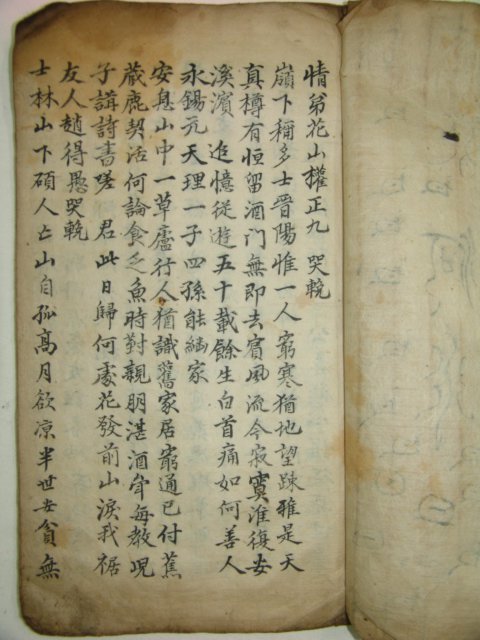 情弟花山權正九 哭輓
嶺下稱多士晋陽惟一人 窮寒猶地望踈雅是天
真樽有恒留酒門無即去賓風流今寂寞淮復安
溪濱 追憶從遊五十載餘生白首痛如何善人
永錫元天理一子四孫能繼家
安息山中一草廬行人猶識舊家居窮通已付蕉
鹿契活何論食乏魚時對親朋湛酒每教児
子講詩書嗟 君此日歸何處花發前山淚我裾
友人趙得愚哭輓
士林山下碩人亡山自孤高月欲凉半世安貧無